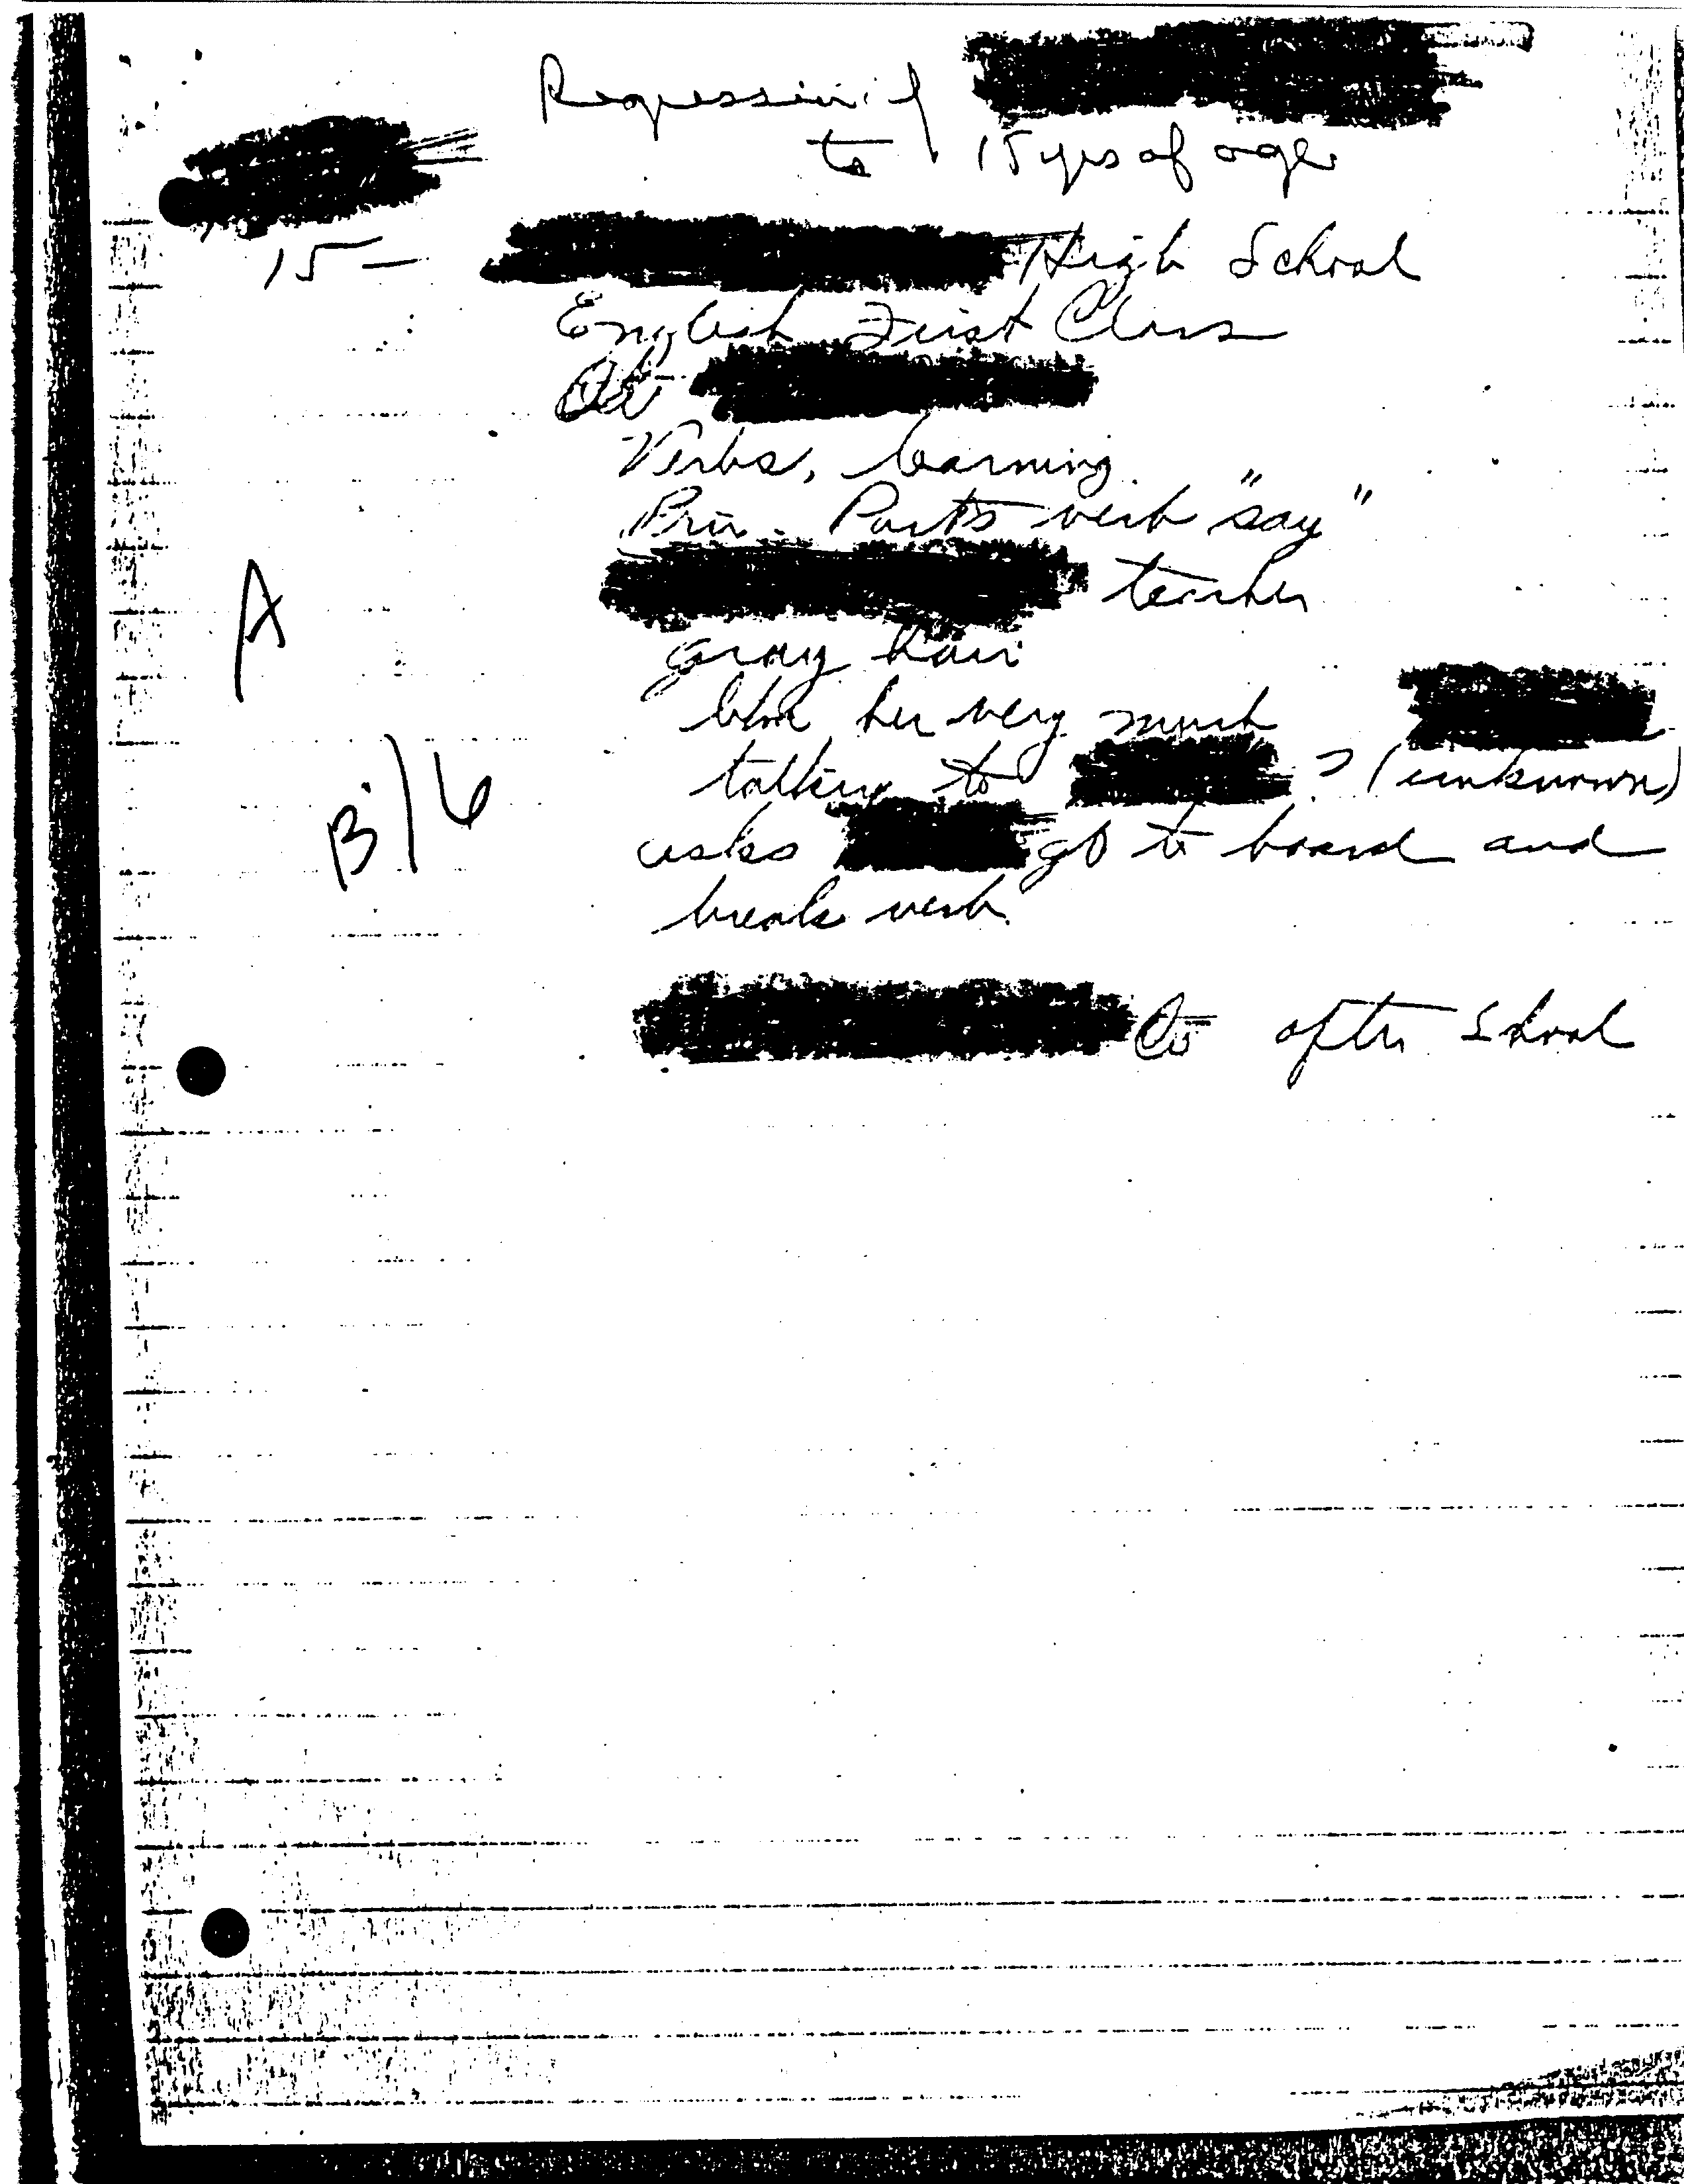 Regression of
to 15 yrs of age
15 - High School
English First Class
Verbs, learning
Prin. Parts verb "say"
teacher
A
gray hair
her very much
talking to ? (unknown)
B/6
asks go to board and
break verb
Co after School